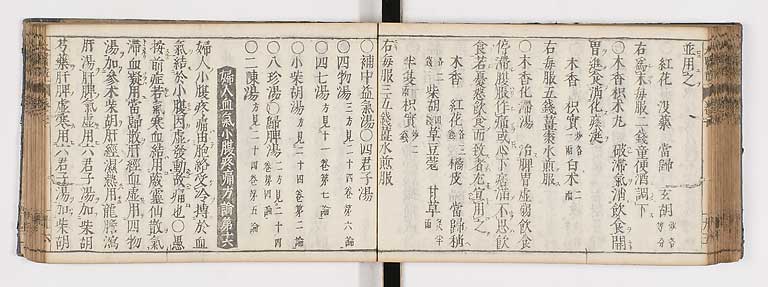 並用之
○紅花 沒藥 當歸 玄胡
右為末每服二錢童便酒調下
○木香枳朮丸 破滯氣消飲食開
胃進食消化痰涎
木香 枳實 白朮
右每服五錢薑棗水煎服
○木香化滯湯 治脾胃虛弱飲食
停滯腹脹作痛或心下痞滿不思飲
食若憂愁飲食而致者尤宜用之
木香 紅花 橘皮 當歸梢
柴胡 草豆蔻 甘草
半夏 枳實
右每服三五錢薑水煎服
○補中益氣湯○四君子湯
○四物湯 三方見二十四卷第六論
○四七湯 方見十一卷第七論
○小柴胡湯 方見二十四卷第二論
○八珍湯○歸脾湯 二方見二十四卷第四論
○二陳湯 方見二十四卷第五論
婦人血氣小腹疼痛方論第六
婦人小腹疼痛由胞給受冷搏於血
氣結於小腹因虛發動故痛也○愚
按前症若氣寒血結用威靈仙散氣
滯血凝用當歸散肝經血虛用四物
湯加參朮柴胡肝經濕熱用龍膽瀉
肝湯肝脾氣虛用六君子湯加柴胡
芍藥肝脾虛寒用六君子湯加柴胡